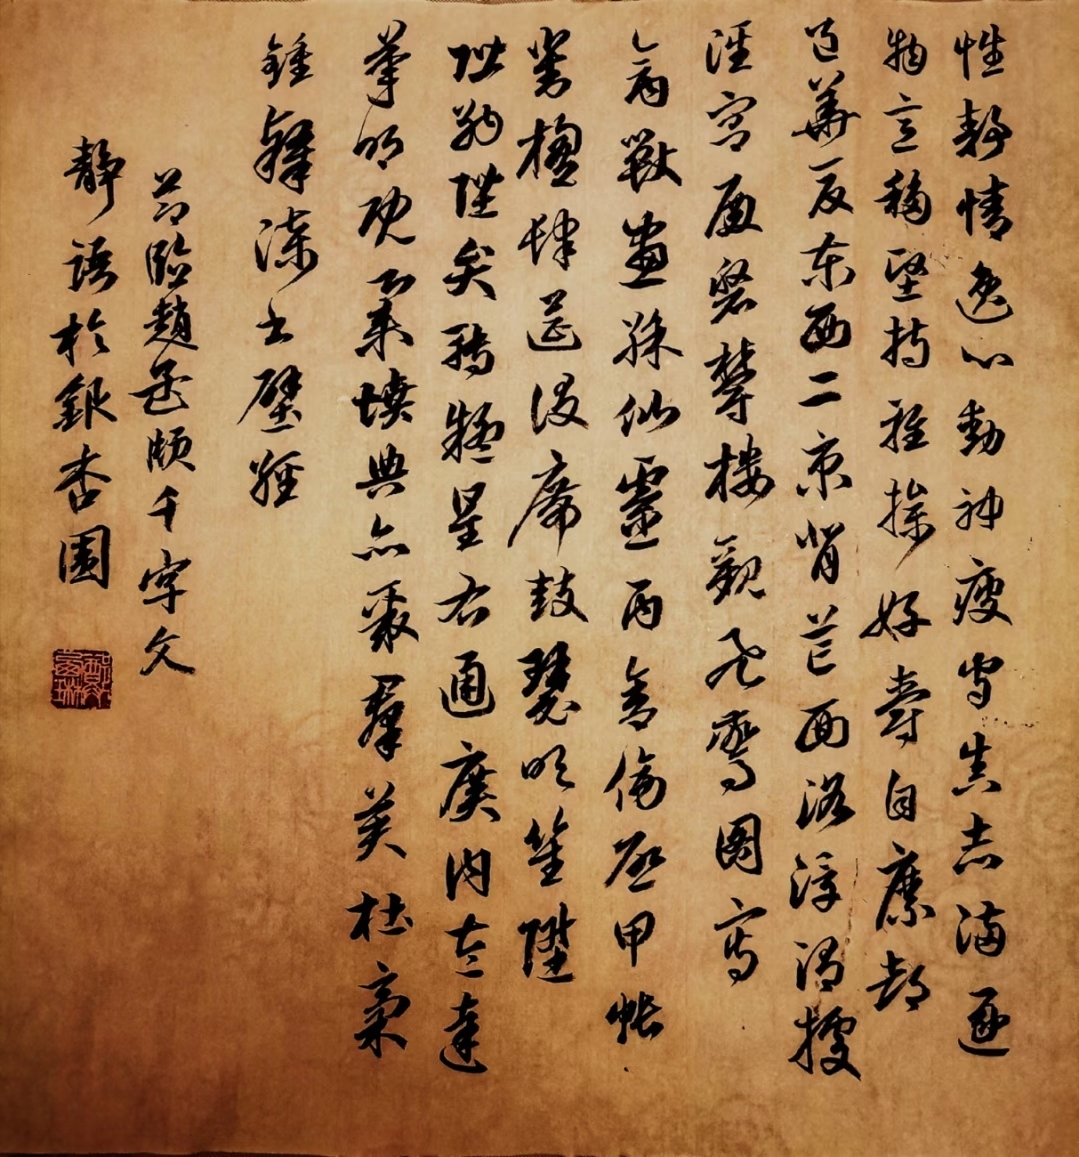 性静情逸心動神疲守真志滿逐
物意移堅持雅操好爵自縻都
邑華夏東西二京背芒面洛浮渭據
涇宮殿磐欝樓觀飛驚圖寫
禽獸畫綵仙靈丙舍傍啟甲帳
對楹肆筵設席鼓瑟吹笙陞
階納陛弁轉疑星右通廣內左達
承明既集墳典亦聚羣英杜稾
鍾隸漆書壁經
節臨趙孟頫千字文
靜語於銀杏園